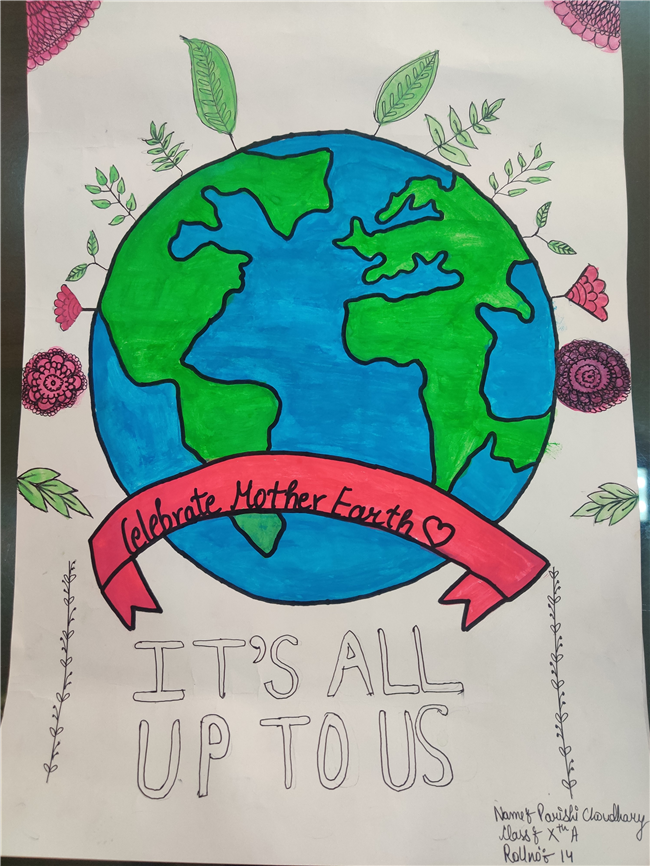 Celebrate Mother Earth
IT'S ALL
UP TO US
Name:- Parishi Choudhary
Class:- Xth A
Rollno:- 14